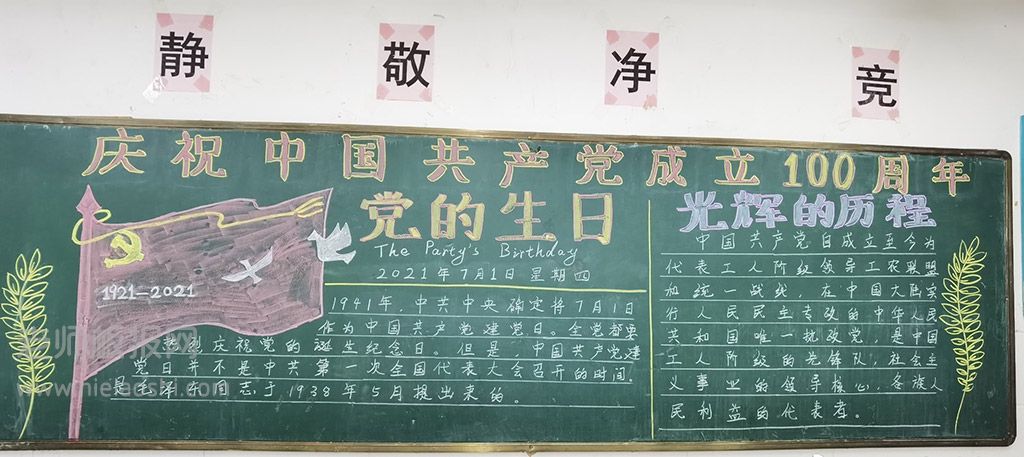 静 敬 净 竞
庆祝中国共产党成立100周年
党的生日
The Party's Birthday
2021年7月1日 星期四
1921—2021
1941年,中共中央确定将7月1日
作为中国共产党建党日。全党都要
热烈庆祝党的诞生纪念日。但是,中国共产党建
党日并不是中共第一次全国代表大会召开的时间.
是毛泽东同志于1938年5月提出来的。
光辉的历程
中国共产党日成立至今为
代表工人阶级领导工农联盟
和统一战线.在中国大陆实
行人民民主专政的中华人民
共和国唯一执政党,是中国
工人阶级的先锋队,社会主
义事业的领导核心,各族人
民利益的代表者。